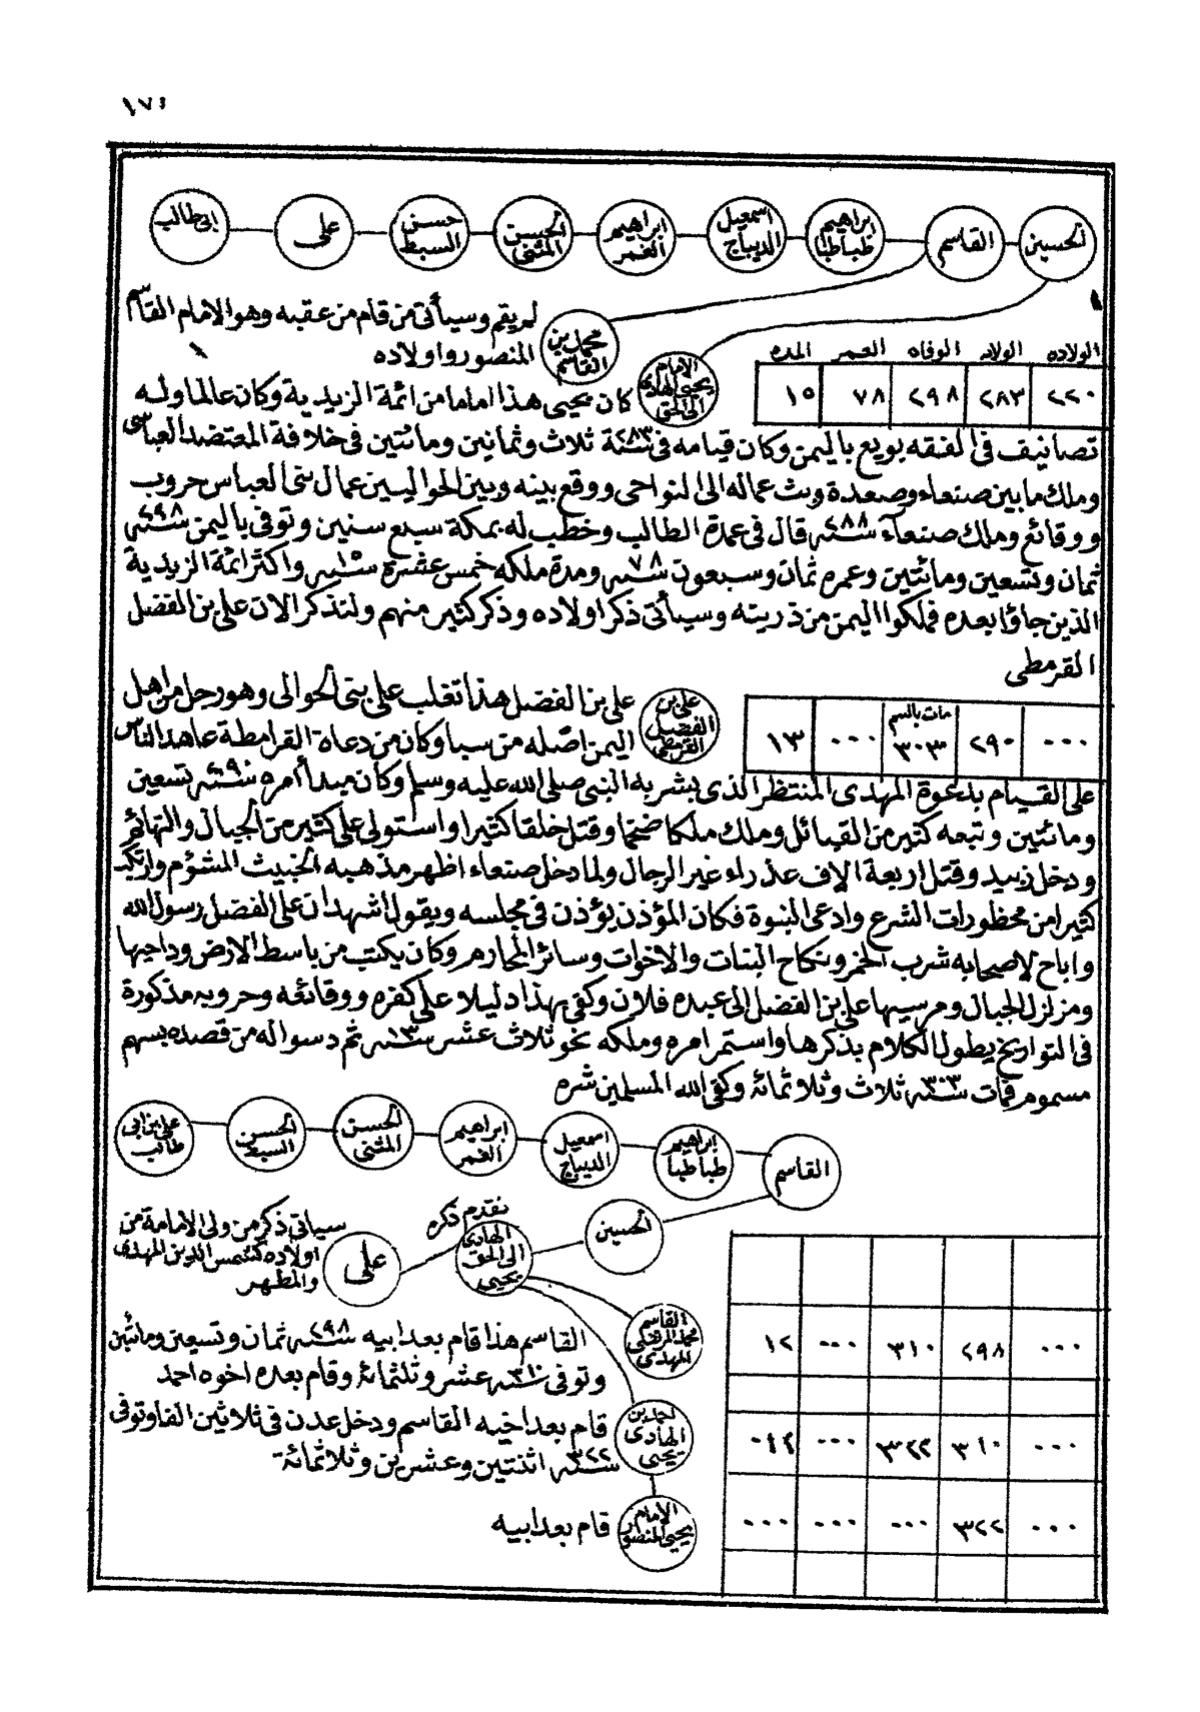 ١٧٠
الحسين
القاسم
ابراهيم طباطبا
اسمعيل الديباج
ابراهيم الغمر
الحسن المثنى
حسن السبط
على
ابى طالب
محمد بن القاسم
لم يقم وسيأتى من قام من عقبه وهو الامام القاسم
المنصور واولاده
الولاده الولايه الوفاه العمر المده
٢٢٠ ٢٨٣ ٢٩٨ ٧٨ ١٥
الامام يحيى الهادى الى الحق
كان يحيى هذا اماما من ائمة الزيدية وكان عالما وله
تصانيف فى الفقه بويع باليمن وكان قيامه فى سنة ٢٨٣ ثلاث وثمانين ومائتين فى خلافة المعتضد العباسى
وملك ما بين صنعاء وصعدة وبث عماله الى النواحى ووقع بينه وبين الحواليين عمال بنى العباس حروب
ووقائع وملك صنعآء سنه ٢٨٨ قال فى عمدة الطالب وخطب له بمكة سبع سنين وتوفى باليمن سنه ٢٩٨
ثمان وتسعين ومائتين وعمره ثمان وسبعون سنه ٧٨ ومدة ملكه خمس عشرة سنه ١٥ واكثر ائمة الزيدية
الذين جاؤا بعده فملكوا اليمن من ذريته وسيأتى ذكر اولاده وذكر كثير منهم ولنذكر الان على بن الفضل
القرمطى
٠٠٠ ٢٩٠ مات بالسم ٣٠٣ ٠٠٠ ١٣
على بن الفضل القرمطى
على بن الفضل هذا تغلب على بنى الحوالى وهو رجل من اهل
اليمن اصله من سبا وكان من دعاة القرامطة عاهد الناس
على القيام بدعوة المهدى المنتظر الذى بشر به النبى صلى الله عليه وسلم وكان مبدأ أمره سنه ٢٩٠ تسعين
ومائتين وتبعه كثير من القبائل وملك ملكا ضخما وقتل خلقا كثيرا واستولى على كثير من الجبال والتهائم
ودخل زبيد وقتل اربعة الاف عذراء غير الرجال ولما دخل صنعاء اظهر مذهبه الخبيث المشؤم وارتكب
كثيرا من محظورات الشرع وادعى النبوة فكان المؤذن يؤذن فى مجلسه ويقول اشهد ان على الفضل رسول الله
واباح لاصحابه شرب الخمر ونكاح البنات والاخوات وسائر المحارم وكان يكتب من باسط الارض وداحيها
ومزلزل الجبال ومرسيها على بن الفضل الى عبده فلان وكفى بهذا دليلا على كفره ووقائعه وحروبه مذكورة
فى التواريخ يطول الكلام بذكرها واستمر امره وملكه نحو ثلاث عشر سنه ١٣ ثم دسوا له من قصده بسم
مسموم فمات سنه ٣٠٣ ثلاث وثلاثمائة وكفى الله المسلمين شره
القاسم
ابراهيم طباطبا
اسمعيل الديباج
ابراهيم الغمر
الحسن المثنى
الحسن السبط
على بن ابى طالب
الحسين
تقدم ذكره
الهادى الى الحق يحيى
على
سياتى ذكر من ولى الامامة من
اولاده كشمس الدين المهدى
والمطهر
القاسم محمد المرتضى المهدى
القاسم هذا قام بعد ابيه سنه ٢٩٨ ثمان وتسعين ومائتين
وتوفى سنه ٣١٠ عشر وثلثمائة وقام بعده اخوه احمد
٠٠٠ ٢٩٨ ٣١٠ ٠٠٠ ١٢
احمد بن الهادى يحيى
قام بعد اخيه القاسم ودخل عدن فى ثلاثين الفا وتوفى
سنه ٣٢٢ اثنتين وعشرين وثلاثمائة
٠٠٠ ٣١٠ ٣٢٢ ٠٠٠
الامام يحيى المنصور
قام بعد ابيه
٠٠٠ ٣٢٢ ٠٠٠ ٠٠٠ ٠٠٠